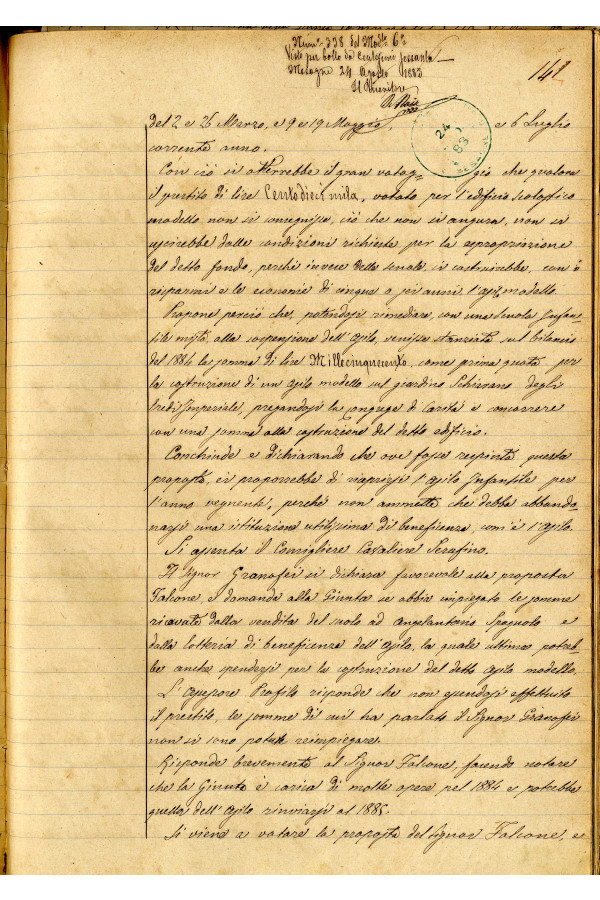 Num.º 338 del Mod.º 6º
Visto per bollo da Centesimi sessanta
Mesagne 24 Agosto 1883
Il Ricevitore
141
24
83
del 2 e 26 Marzo, e 9 e 19 Maggio, e 6 Luglio
corrente anno.
Con ciò si otterrebbe il gran vantaggio che qualora
il prestito di lire Centodieci mila, votato per l'edificio scolastico
modello non si conseguisse, ciò che non si augura, non si
uscirebbe dalle condizioni richieste per la espropriazione
del detto fondo, perché invece delle scuole si costruirebbe, con i
risparmi e le economie di cinque o sei anni l'asilo modello.
Propone perciò che, potendosi rimediare, con una scuola Infan-
tile mista, alla sospensione dell'Asilo, venisse stanziata sul bilancio
del 1884 la somma di lire Millecinquecento, come prima quota per
la costruzione di un asilo modello sul giardino Schiavano degli
eredi Imperiale, pregandosi la Congrega di Carità a concorrere
con una somma alla costruzione del detto edificio.
Conchiude e dichiarando che ove fosse respinta questa
proposta, ei proporrebbe di riaprirsi l'Asilo Infantile per
l'anno vegnente, perché non ammette che debba abbando-
narsi una istituzione utilissima di beneficenza, com'è l'Asilo.
Si assenta il Consigliere Cavaliere Serafino.
Il Signor Granafei si dichiara favorevole alla proposta
Falcone e domanda alla Giunta se abbia impiegato le somme
ricavate dalla vendita del suolo ad Angelantonio Spagnolo e
dalla lotteria di beneficenza dell'Asilo, la quale ultima potreb-
be anche spendersi per la costruzione del detto Asilo modello.
L'Assessore Profilo risponde che non essendosi effettuito
il prestito, le somme di cui ha parlato il Signor Granafei
non si sono potute reimpiegare.
Risponde brevemente al Signor Falcone, facendo notare
che la Giunta è carica di molte opere pel 1884 e potrebbe
quella dell'Asilo rinviarsi al 1885.
Si viene a votare la proposta del Signor Falcone, e